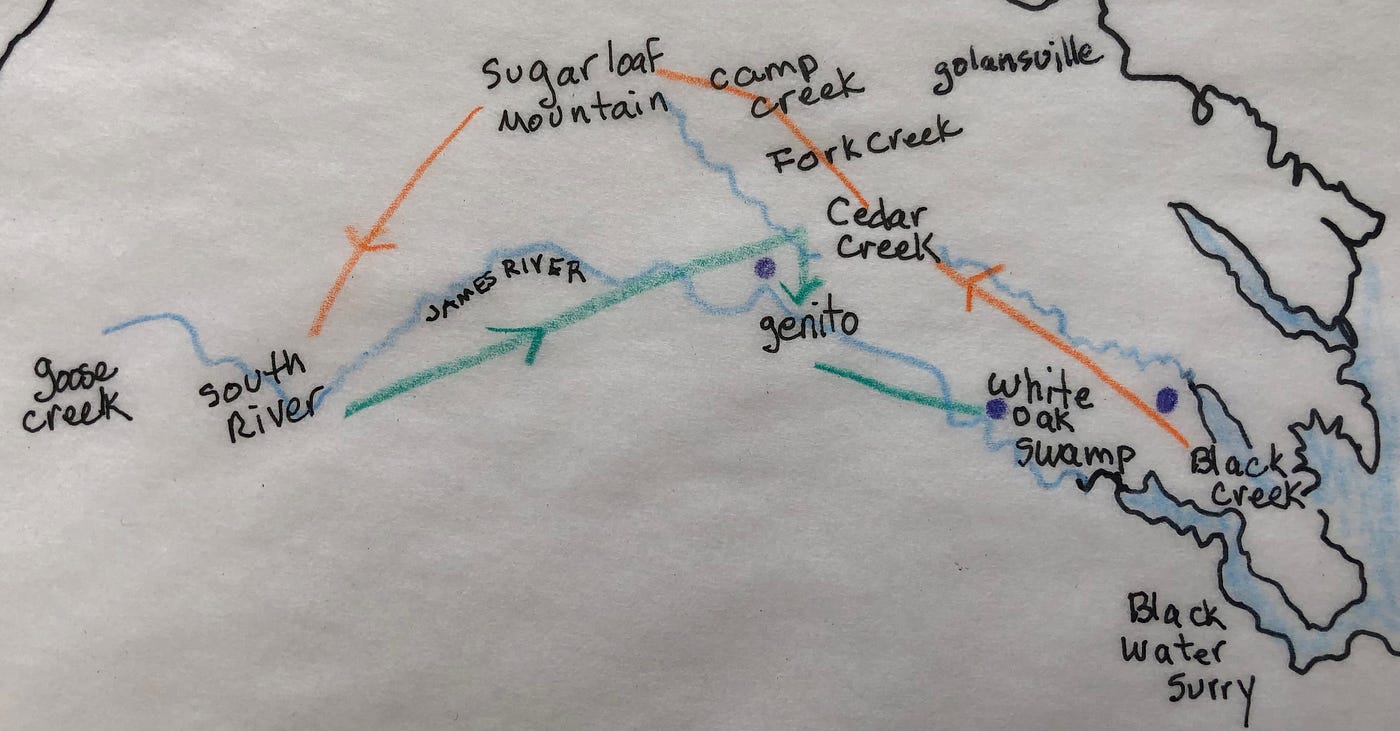 Sugarloaf
Mountain
Camp
Creek
golansville
Fork Creek
Cedar
Creek
JAMES RIVER
genito
goose
creek
South
River
White
Oak
Swamp
Black
Creek
Black
Water
Surry